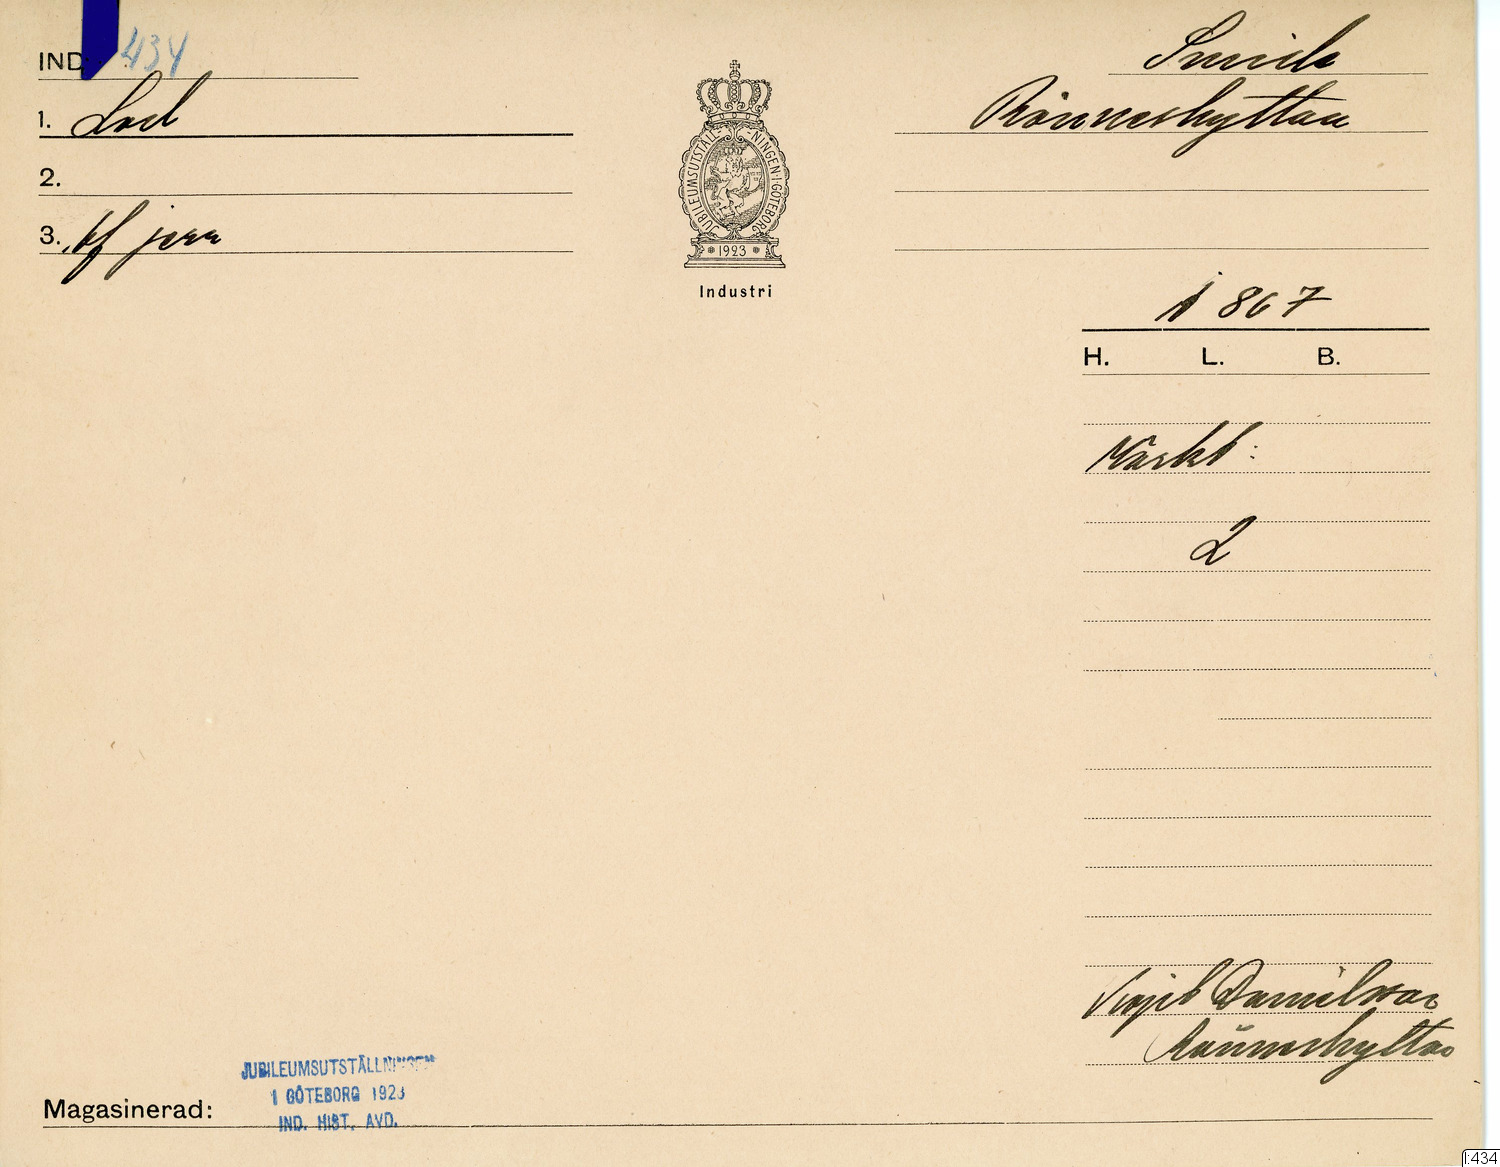 IND. 434
1. Lod
2.
3. af jern
JUBILEUMSUTSTÄLLNINGEN I GÖTEBORG
1923
Industri
Rönneshyttan
1867
H. L. B.
Märkt:
2
Danielsson
Rönneshyttan
JUBILEUMSUTSTÄLLNINGEN
I GÖTEBORG 1923
IND. HIST. AVD.
Magasinerad:
I:434